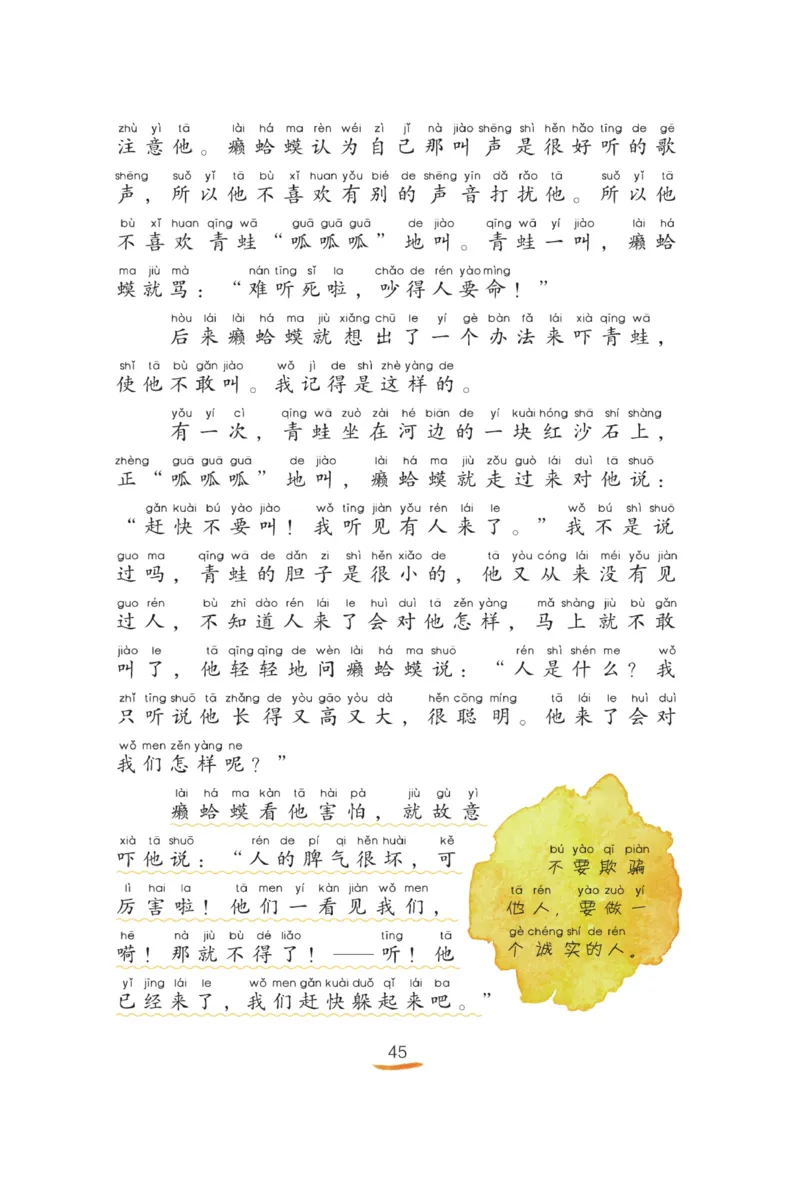 zhù yì tā lài há ma rèn wéi zì jǐ nà jiào shēng shì hěn hǎo tīng de gē
注意他。癞蛤蟆认为自己那叫声是很好听的歌
shēng suǒ yǐ tā bù xǐ huan yǒu bié de shēng yīn dǎ rǎo tā suǒ yǐ tā
声，所以他不喜欢有别的声音打扰他。所以他
bù xǐ huan qīng wā guā guā guā de jiào qīng wā yí jiào lài há
不喜欢青蛙“呱呱呱”地叫。青蛙一叫，癞蛤
ma jiù mà nán tīng sǐ la chǎo de rén yào mìng
蟆就骂：“难听死啦，吵得人要命！”
hòu lái lài há ma jiù xiǎng chū le yí gè bàn fǎ lái xià qīng wā
后来癞蛤蟆就想出了一个办法来吓青蛙，
shǐ tā bù gǎn jiào wǒ jì de shì zhè yàng de
使他不敢叫。我记得是这样的。
yǒu yí cì qīng wā zuò zài hé biān de yí kuài hóng shā shí shàng
有一次，青蛙坐在河边的一块红沙石上，
zhèng guā guā guā de jiào lài há ma jiù zǒu guò lái duì tā shuō
正“呱呱呱”地叫，癞蛤蟆就走过来对他说：
gǎn kuài bú yào jiào wǒ tīng jiàn yǒu rén lái le wǒ bú shì shuō
“赶快不要叫！我听见有人来了。”我不是说
guo ma qīng wā de dǎn zi shì hěn xiǎo de tā yòu cóng lái méi yǒu jiàn
过吗，青蛙的胆子是很小的，他又从来没有见
guo rén bù zhī dào rén lái le huì duì tā zěn yàng mǎ shàng jiù bù gǎn
过人，不知道人来了会对他怎样，马上就不敢
jiào le tā qīng qīng de wèn lài há ma shuō rén shì shén me wǒ
叫了，他轻轻地问癞蛤蟆说：“人是什么？我
zhǐ tīng shuō tā zhǎng de yòu gāo yòu dà hěn cōng míng tā lái le huì duì
只听说他长得又高又大，很聪明。他来了会对
wǒ men zěn yàng ne
我们怎样呢？”
lài há ma kàn tā hài pà jiù gù yì
癞蛤蟆看他害怕，就故意
xià tā shuō rén de pí qi hěn huài kě
吓他说：“人的脾气很坏，可
lì hai la tā men yí kàn jiàn wǒ men
厉害啦！他们一看见我们，
hē nà jiù bù dé liǎo tīng tā
嗬！那就不得了！——听！他
yǐ jīng lái le wǒ men gǎn kuài duǒ qǐ lái ba
已经来了，我们赶快躲起来吧。”
bú yào qī piàn
不要欺骗
tā rén yào zuò yí
他人，要做一
gè chéng shí de rén
个诚实的人。
45